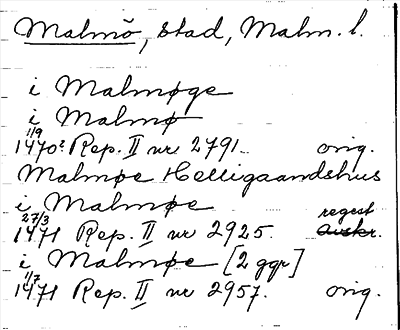 Malmö, stad, Malm. l.
i Malmøge
i Malmø
1/9
1470? Rep. II nr 2791. orig.
Malmøe Helligaandshus
i Malmøe
27/3 regest
1471 Rep. II nr 2925. Avskr.
i Malmøe [2 ggr]
1/7
1471 Rep. II nr 2957. orig.